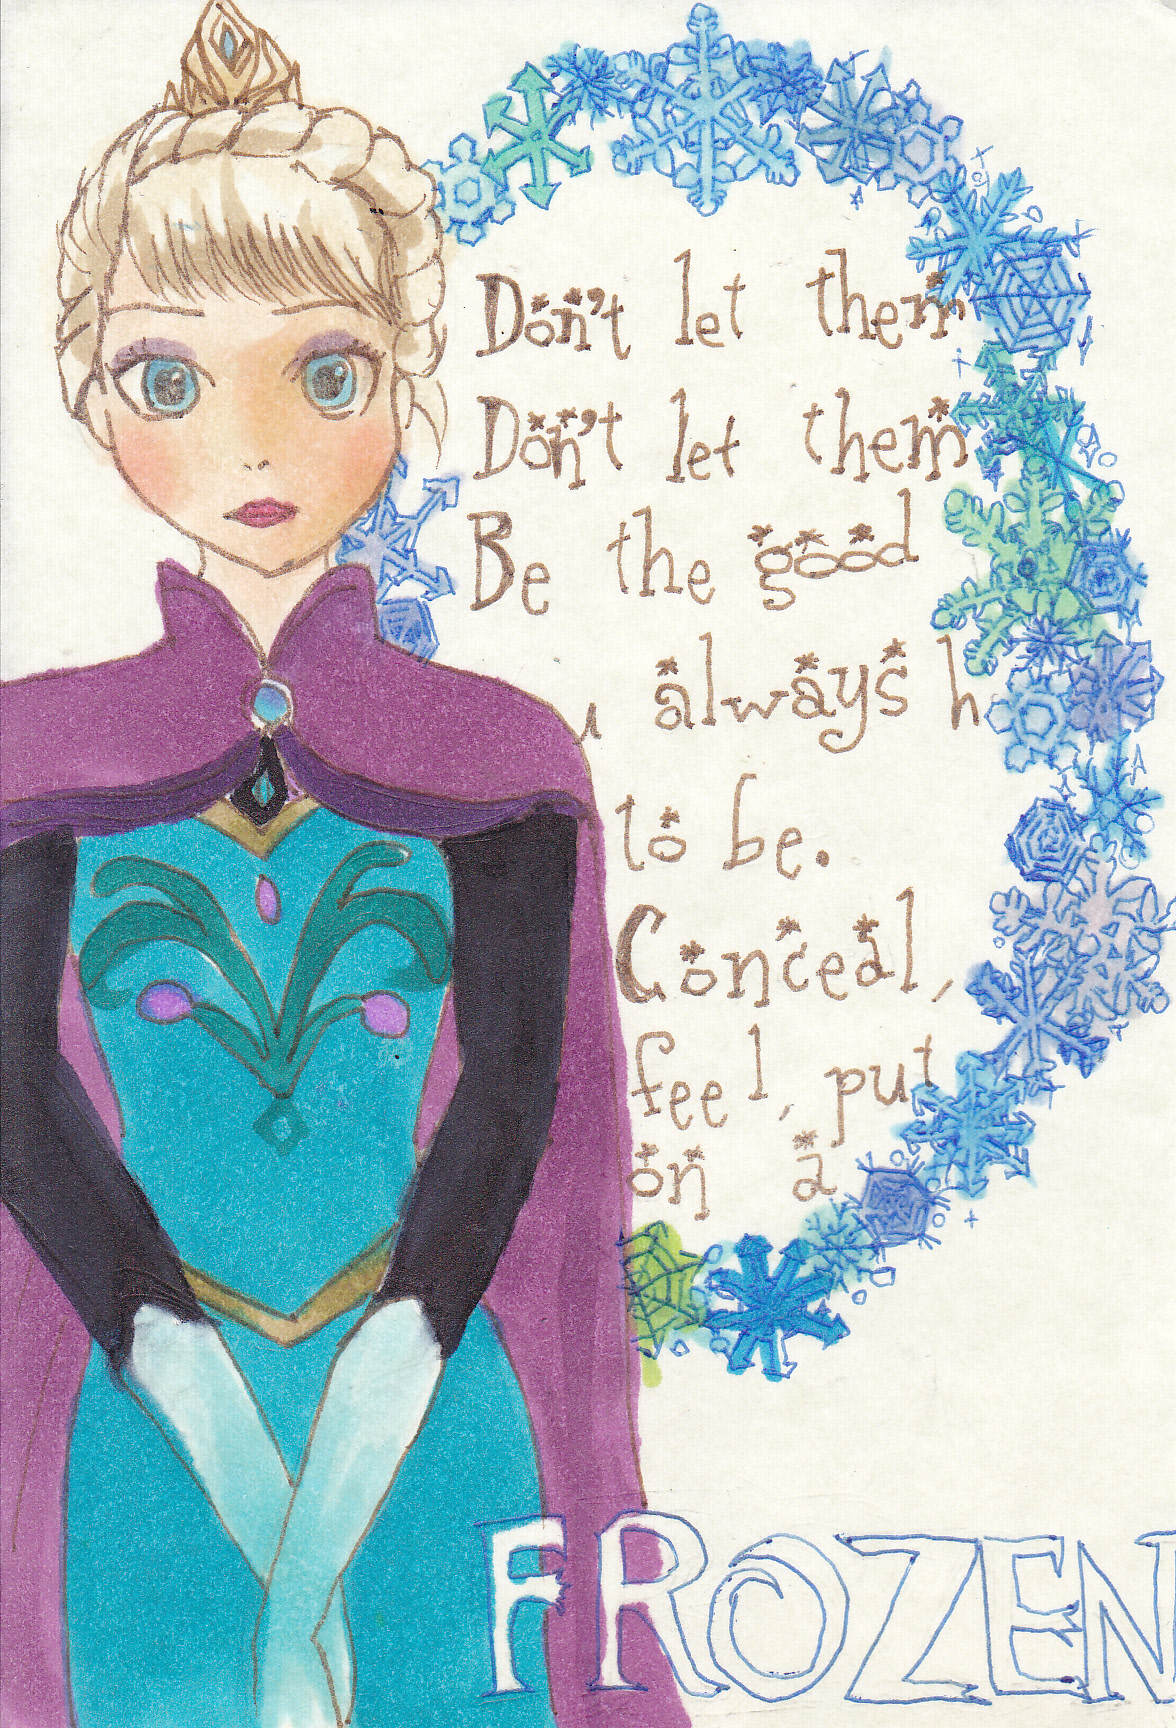 Don't let them
Don't let them
Be the good
u always h
to be.
Conceal,
feel, put
on a
FROZEN